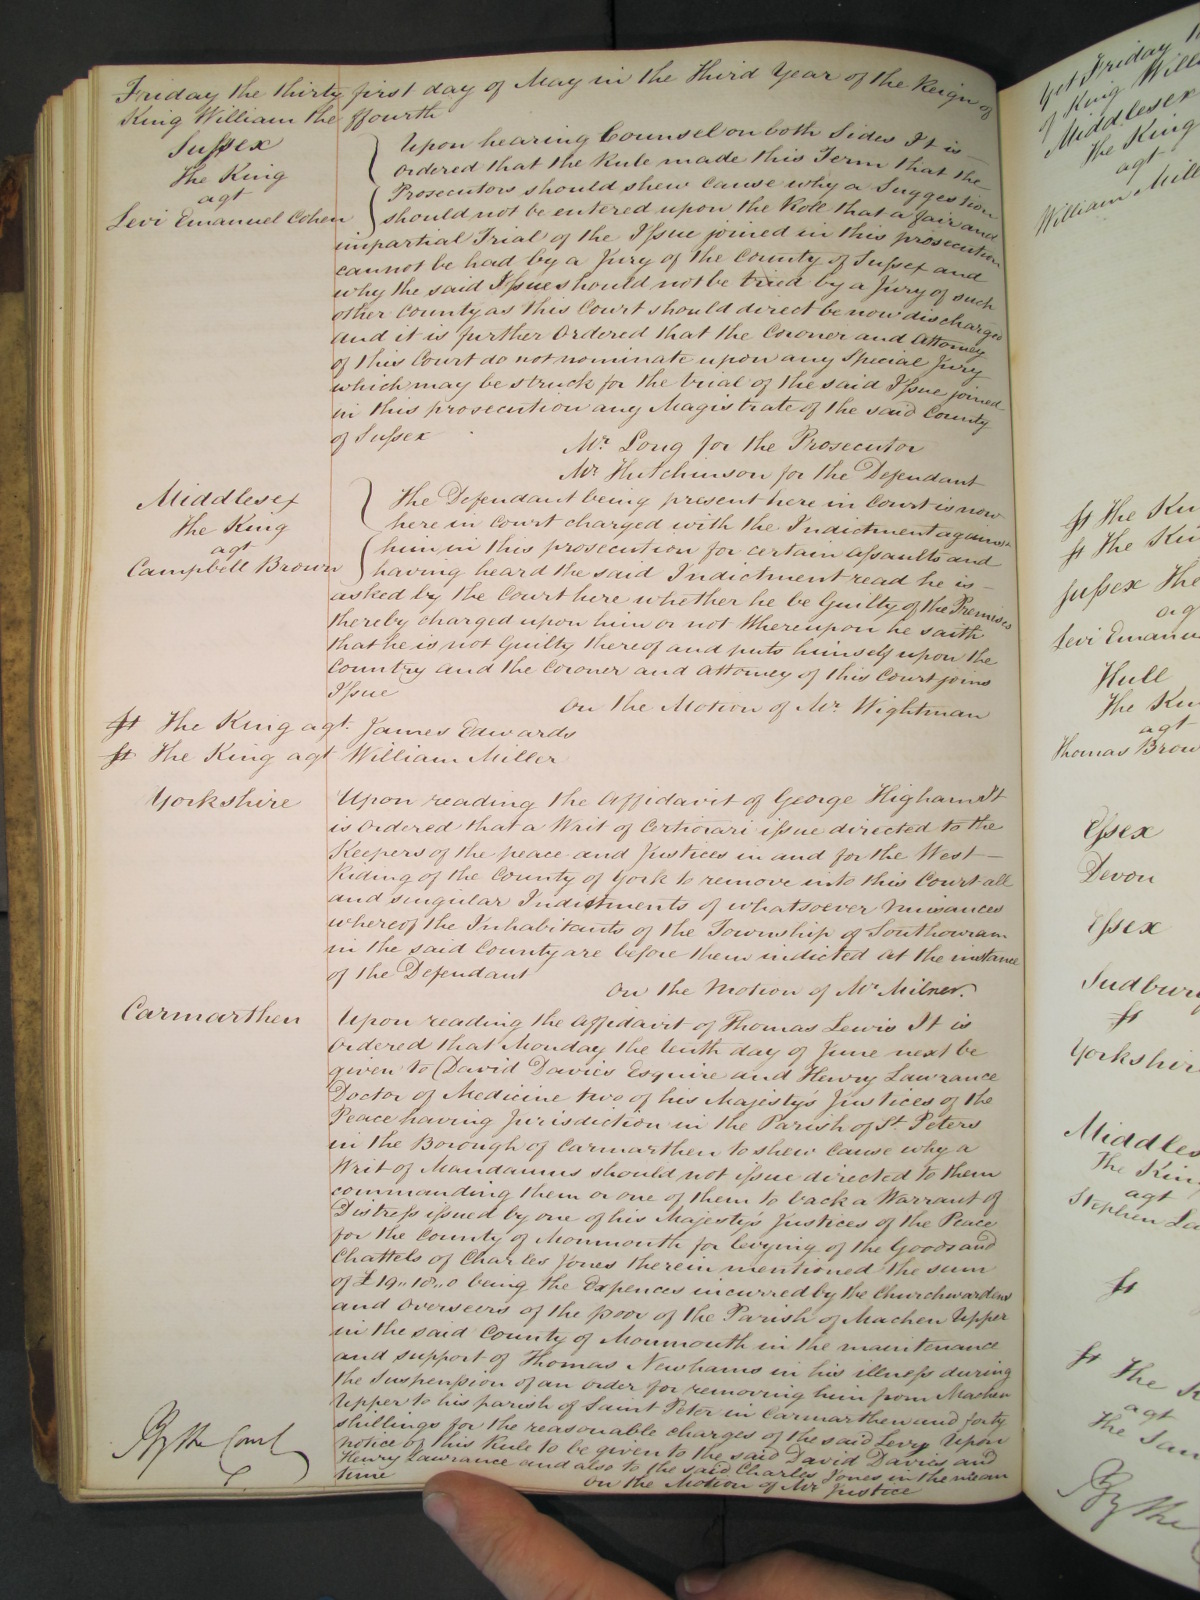 Friday the thirty first day of May in the Third Year of the Reign of
King William the ffourth
Sussex
The King
agt
Levi Emanuel Cohen
Upon hearing Counsel on both Sides It is
ordered that the Rule made this Term that the
Prosecutors should shew cause why a Suggestion
should not be entered upon the Roll that a fair and
impartial Trial of the Issue joined in this prosecution
cannot be had by a Jury of the County of Sussex and
why the said Issue should not be tried by a Jury of such
other county as this Court should direct be now discharged
and it is further Ordered that the Coroner and Attorney
of this Court do not nominate upon any Special Jury
which may be struck for the trial of the said Issue joined
in this prosecution any Magistrate of the said County
of Sussex
Mr. Long for the Prosecutor
Mr Hutchinson for the Defendant
Middlesex
The King
agt
Campbell Brown
The Defendant being present here in Court is now
here in Court charged with the Indictment against
him in this prosecution for certain assaults and
having heard the said Indictment read he is
asked by the Court here whether he be Guilty of the Premises
thereby charged upon him or not Whereupon he saith
that he is not Guilty thereof and puts himself upon the
Country and the Coroner and Attorney of this Court joins
Issue
On the Motion of Mr Wightman
The King agt. James Edwards
The King agt William Miller
Yorkshire
Upon reading the Affidavit of George Higham It
is Ordered that a Writ of Certiorari issue directed to the
Keepers of the peace and Justices in and for the West
Riding of the County of York to remove into this Court all
and singular Indictments of whatsoever Nuisances
whereof the Inhabitants of the Township of Southowram
in the said County are before them indicted At the instance
of the Defendant
On the Motion of Mr Milner.
Carmarthen
Upon reading the Affidavit of Thomas Lewis It is
Ordered that Monday the tenth day of June next be
given to David Davies Esquire and Henry Lawrance
Doctor of Medicine two of his Majesty's Justices of the
Peace having Jurisdiction in the Parish of St. Peters
in the Borough of Carmarthen to shew Cause why a
Writ of Mandamus should not issue directed to them
commanding them or one of them to back a Warrant of
Distress issued by one of his Majesty's Justices of the Peace
for the County of Monmouth for levying of the Goods and
Chattels of Charles Jones therein mentioned the sum
of £19..18..0 being the Expences incurred by the Churchwardens
and Overseers of the poor of the Parish of Machen Upper
in the said County of Monmouth in the maintenance
and support of Thomas Newhams in his illness during
the Suspension of an order for removing him from Machen
Upper to his parish of Saint Peter in Carmarthen and forty
shillings for the reasonable charges of the said Levy Upon
notice of this Rule to be given to the said David Davies and
Henry Lawrance and also to the said Charles Jones in the mean
time
On the Motion of Mr Justice
By the Court
Yet Friday
of King Willi
Middlesex
The King
agt
William Mill
The Ki
The Ki
Sussex The
ag
Levi Emanu
Hull
The Ki
agt
Thomas Brow
Essex
Devon
Essex
Sudbury
Yorkshir
Middles
The Kin
agt
Stephen La
The K
agt
By the